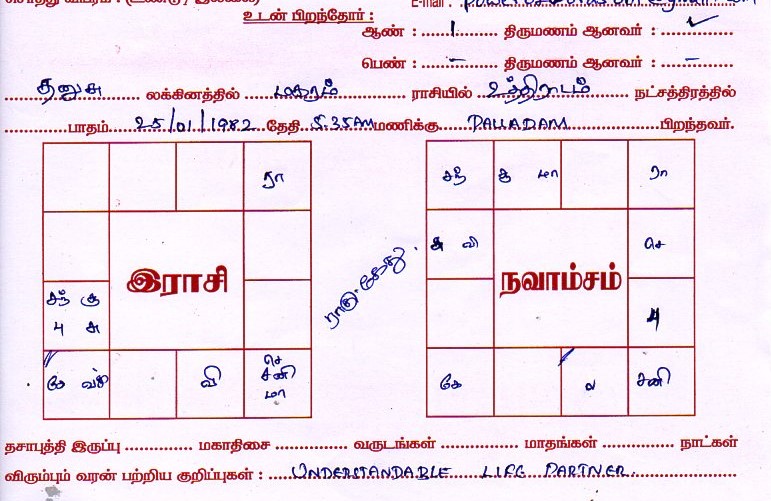 உடன் பிறந்தோர் :
ஆண் : 1 திருமணம் ஆனவர் : ✓
பெண் : - திருமணம் ஆனவர் : -
தனுசு லக்கினத்தில் மகரம் ராசியில் உத்திராடம் நட்சத்திரத்தில்
பாதம் 25/01/1982 தேதி 5.35AM மணிக்கு PALLADAM பிறந்தவர்.
ரா
இராசி
சந் சூ
பு சு
கே
வி
செ
சனி
மா
ராகு கேது
சந் சூ மா ரா
சு வி செ
நவாம்சம்
பு
கே ல சனி
தசாபுத்தி இருப்பு மகாதிசை வருடங்கள் மாதங்கள் நாட்கள்
விரும்பும் வரன் பற்றிய குறிப்புகள் : UNDERSTANDABLE LIFE PARTNER.